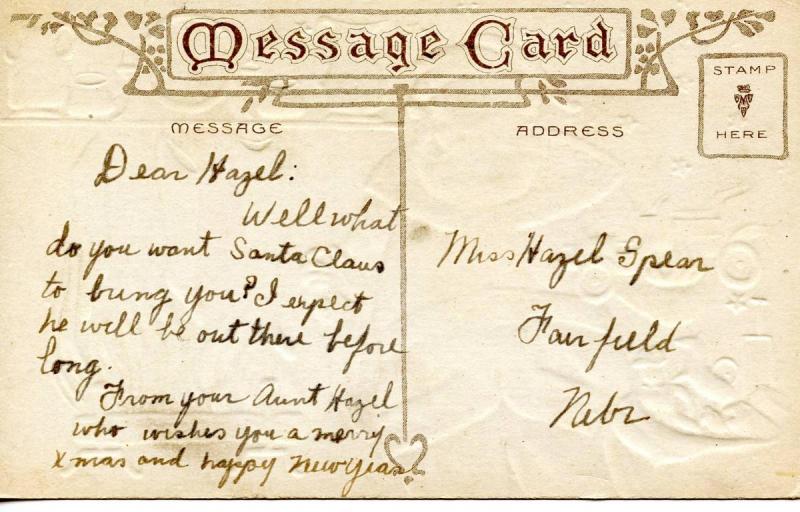 Message Card
STAMP
HERE
MESSAGE
Dear Hazel:
Well what
do you want Santa Claus
to bring you? I expect
he will be out there before
long.
From your Aunt Hazel
who wishes you a merry
Xmas and happy New Year.
ADDRESS
Miss Hazel Spear
Fairfield
Nebr